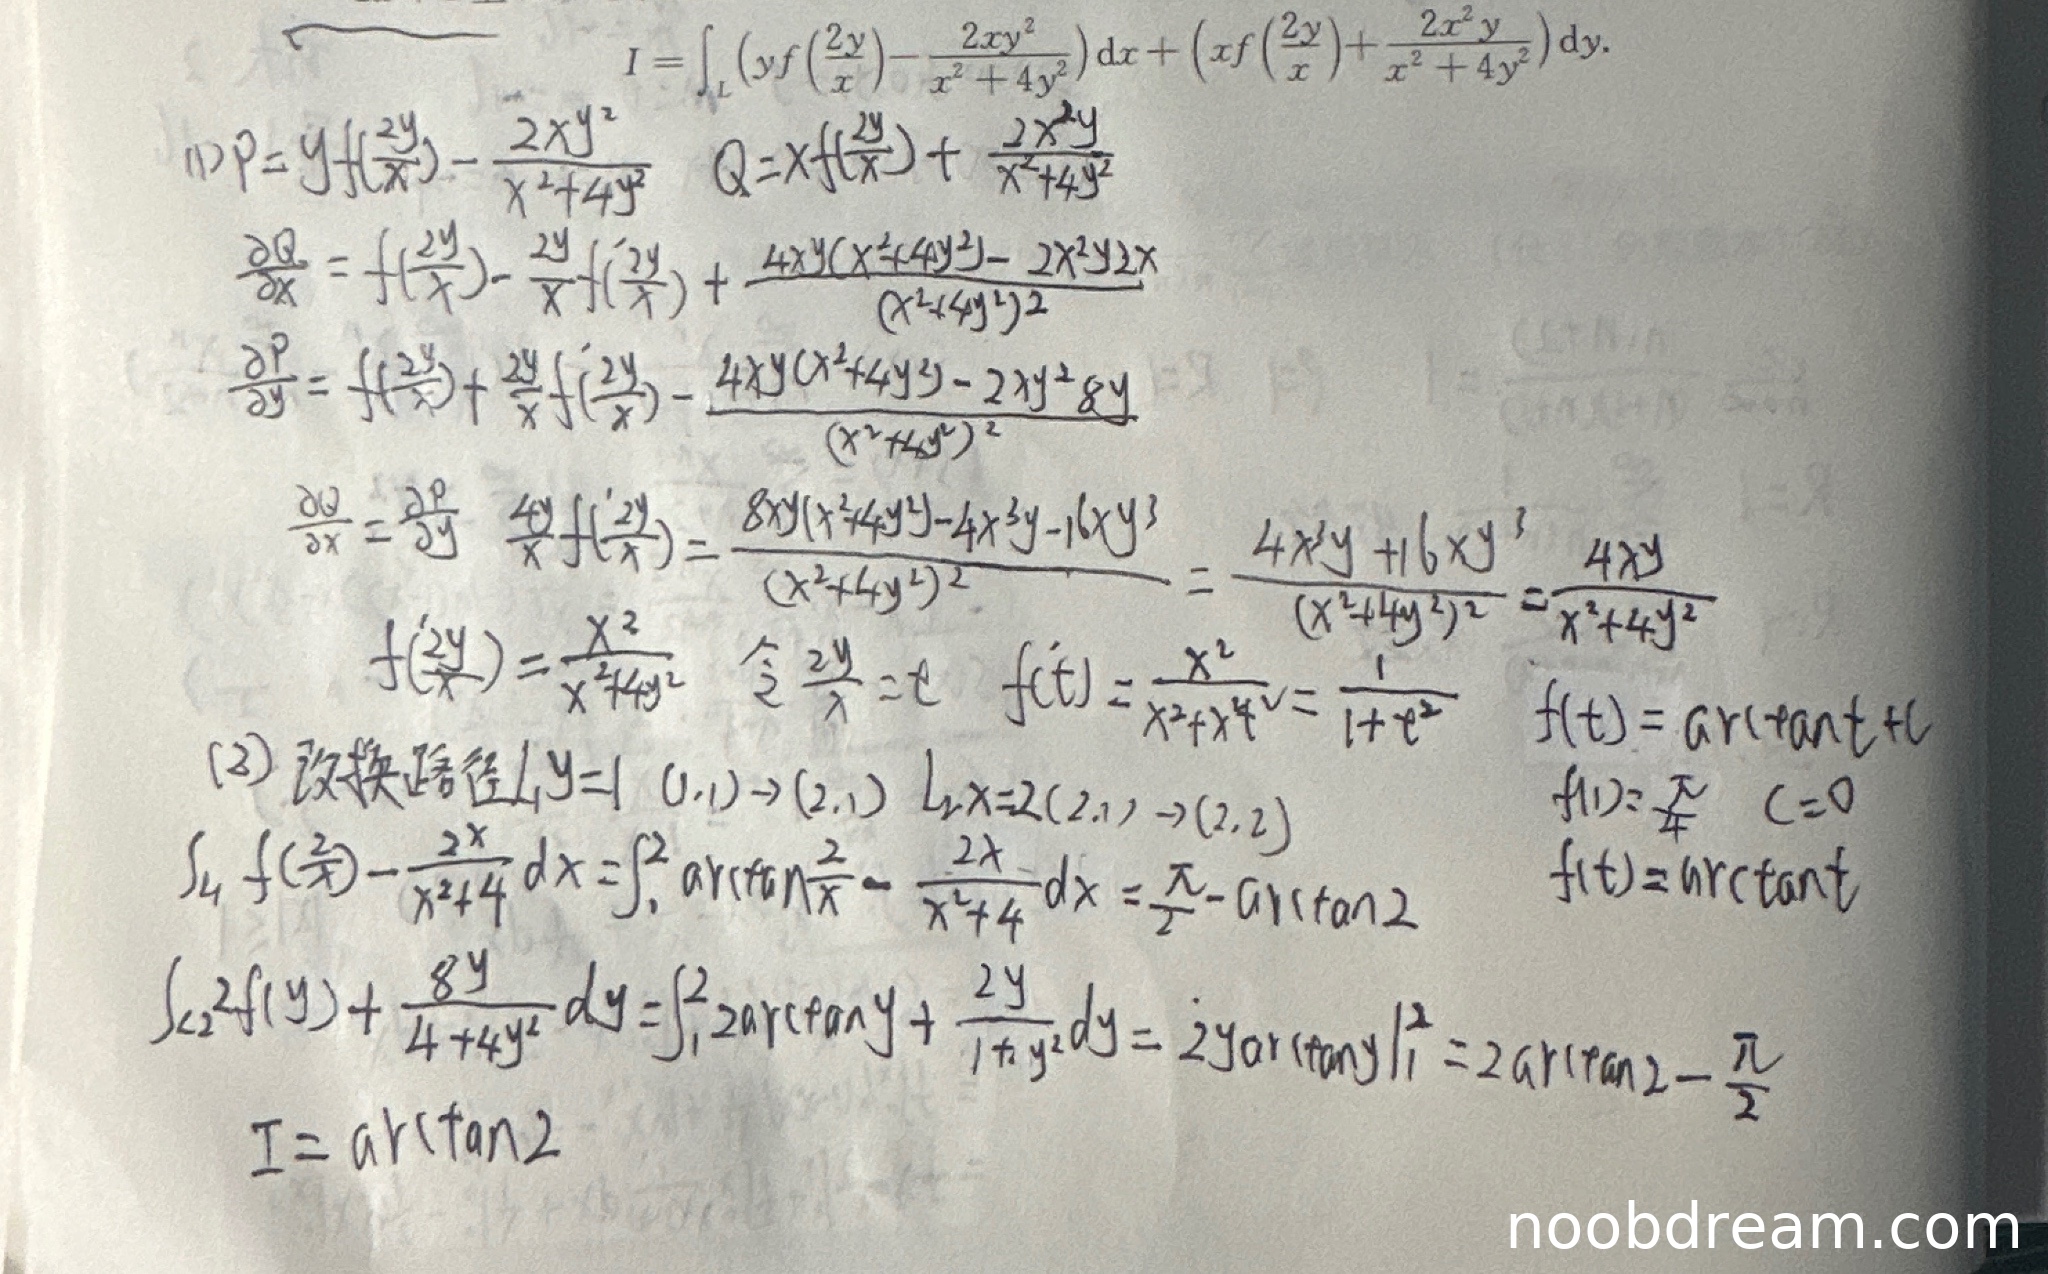 I = ∫_L (yf(2y/x) − 2xy²/(x² + 4y²)) dx + (xf(2y/x) + 2x²y/(x² + 4y²)) dy.
(1) P = yf(2y/x) − 2xy²/(x²+4y²) Q = xf(2y/x) + 2x²y/(x²+4y²)
∂Q/∂x = f(2y/x) − 2y/x f'(2y/x) + (4xy(x²+4y²) − 2x²y2x)/(x²+4y²)²
∂P/∂y = f(2y/x) + 2y/x f'(2y/x) − (4xy(x²+4y²) − 2xy²8y)/(x²+4y²)²
∂Q/∂x = ∂P/∂y 4y/x f'(2y/x) = (8xy(x²+4y²) − 4x³y − 16xy³)/(x²+4y²)² = (4x³y + 16xy³)/(x²+4y²)² = 4xy/(x²+4y²)
f'(2y/x) = x²/(x²+4y²) 令 2y/x = t f'(t) = x²/(x²+x²t²) = 1/(1+t²) f(t) = arctant + C
f(1) = π/4 C = 0
f(t) = arctant
(2) 改换路径 L₁ y=1 (1,1)→(2,1) L₂ x=2 (2,1)→(2,2)
∫_L₁ f(2/x) − 2x/(x²+4) dx = ∫₁² arctan 2/x − 2x/(x²+4) dx = π/2 − arctan2
∫_L₂ 2f(y) + 8y/(4+4y²) dy = ∫₁² 2arctany + 2y/(1+y²) dy = 2yarctany|₁² = 2arctan2 − π/2
I = arctan2
noobdream.com